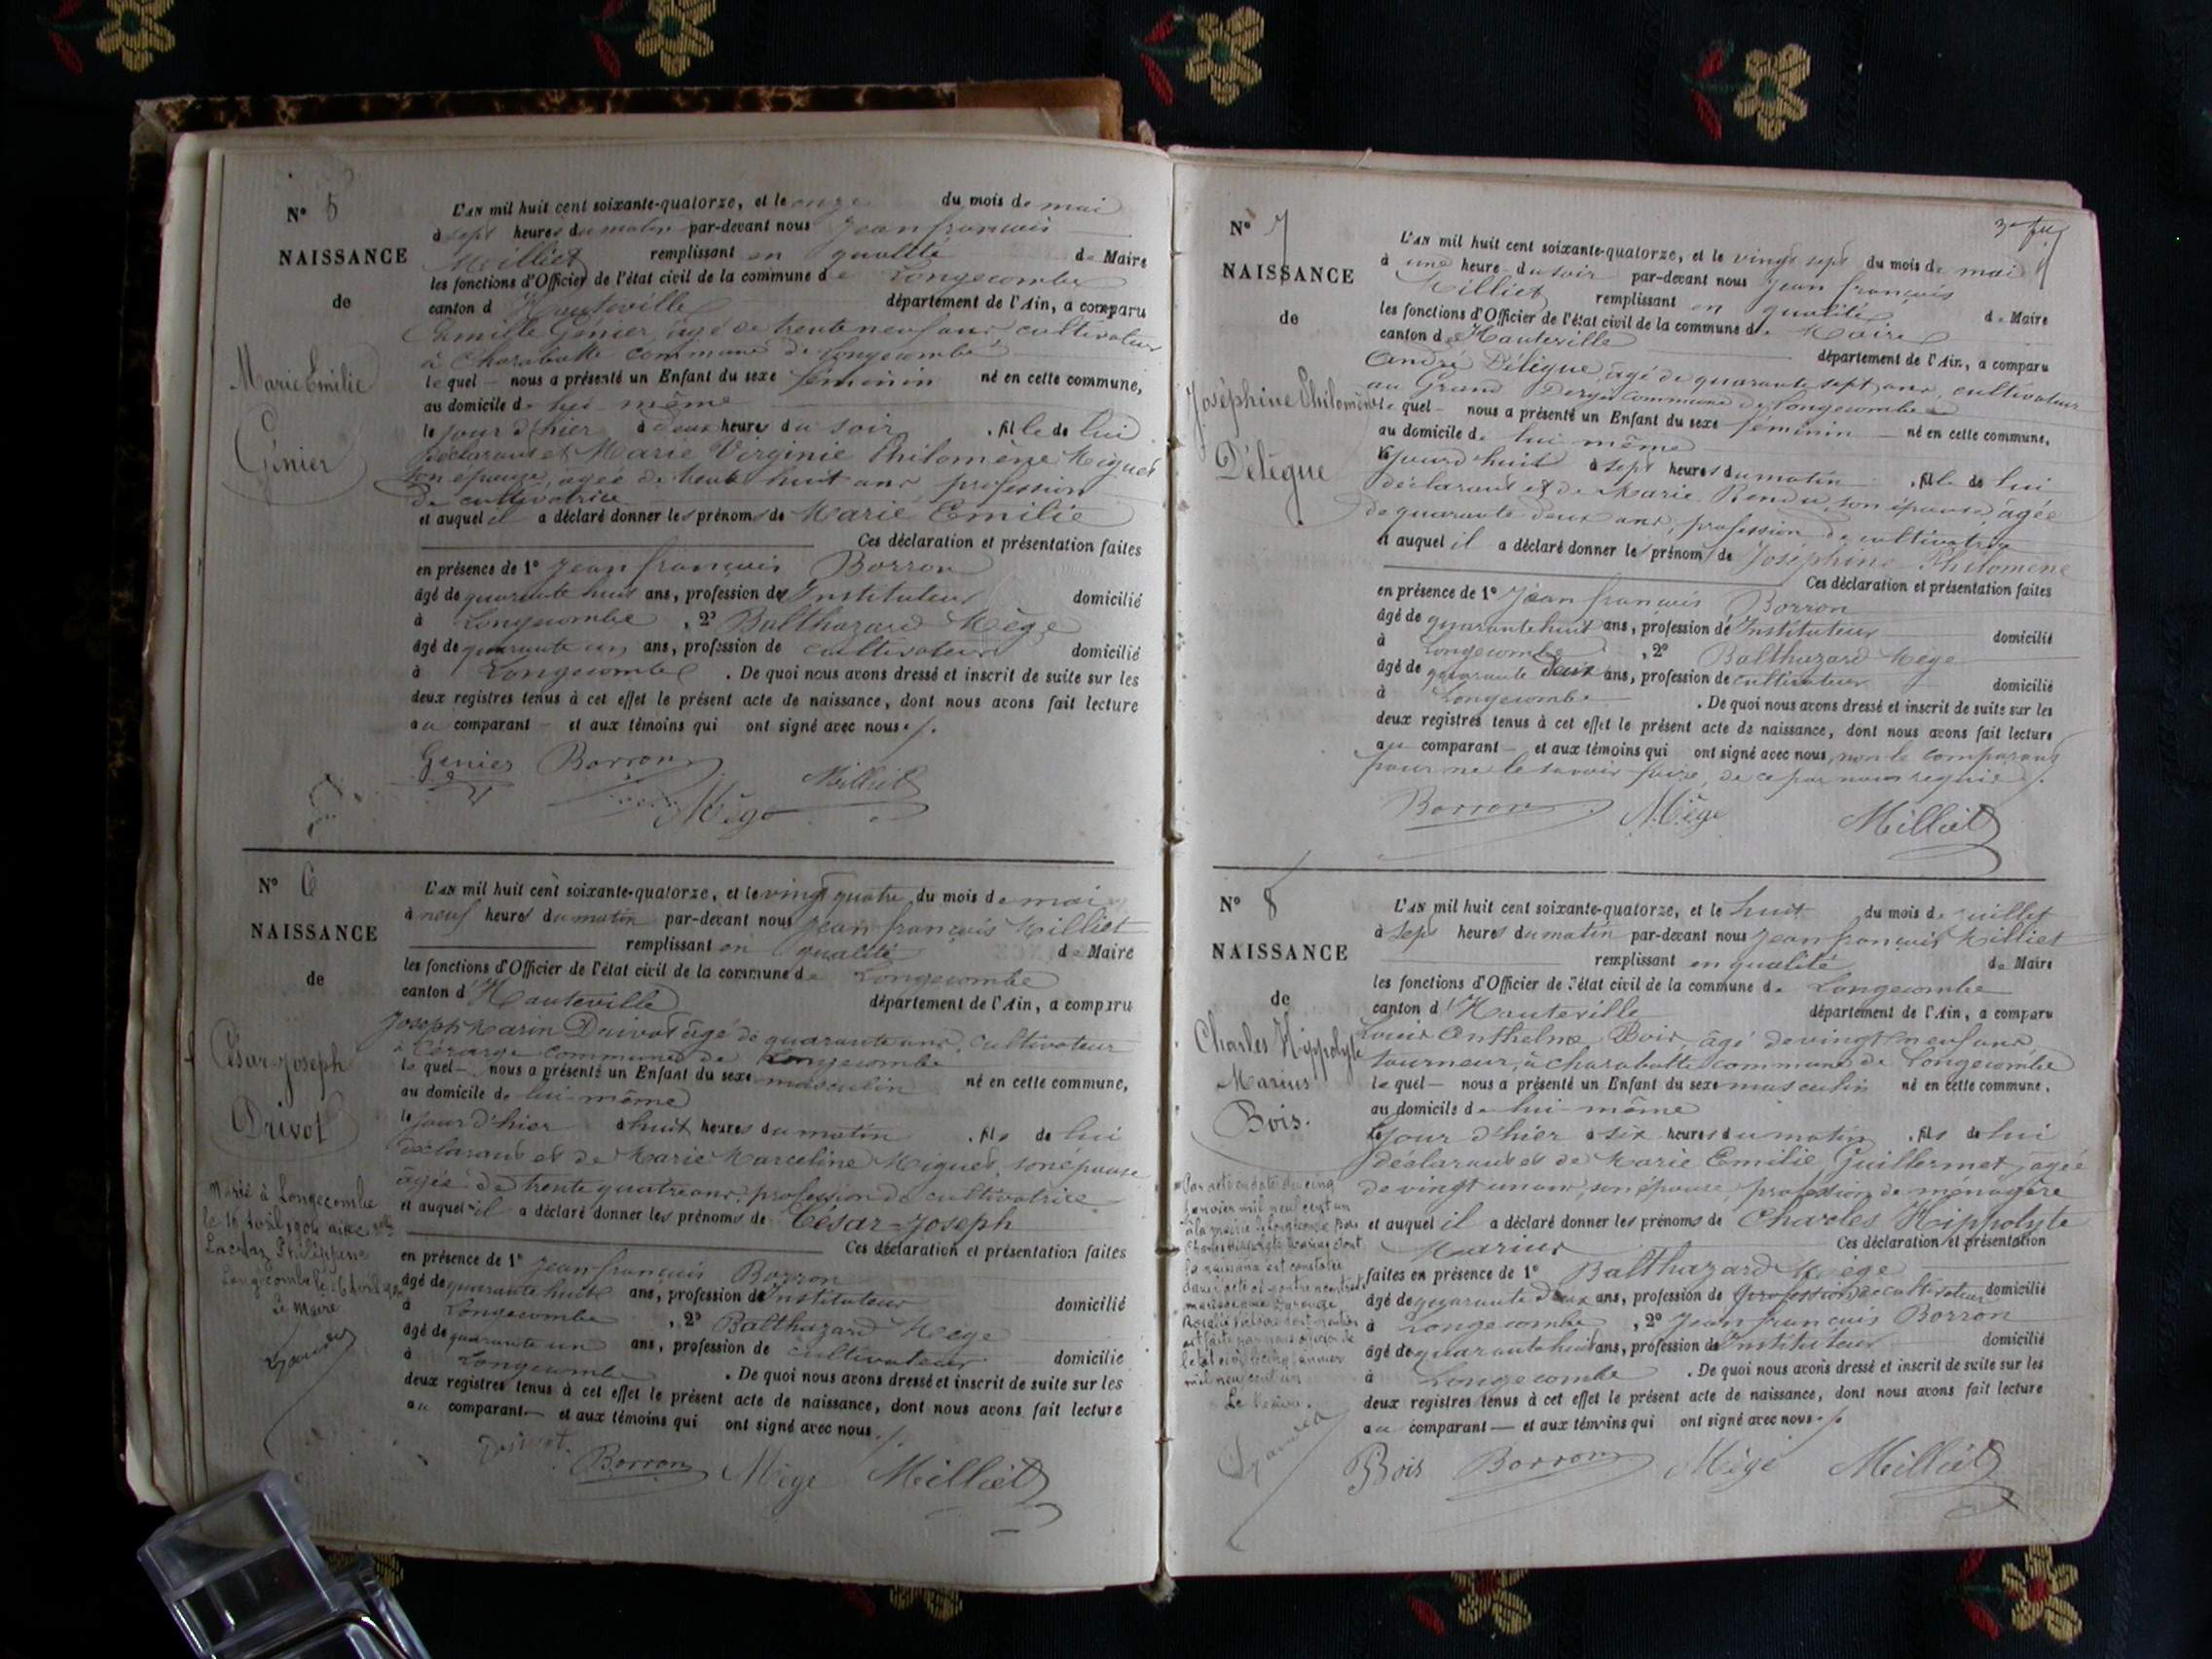 N° 5
NAISSANCE
de
Marie Emilie
Génier
L'AN mil huit cent soixante-quatorze, et le onze du mois de mai
à sept heures du matin par-devant nous Jean françois
Milliet remplissant en qualité de Maire
les fonctions d'Officier de l'état civil de la commune de Longecombe
canton d'Hauteville département de l'Ain, a comparu
Camille Génier, âgé de trente neuf ans, cultivateur
à Charabotte commune de Longecombe
lequel nous a présenté un Enfant du sexe féminin né en cette commune,
au domicile de lui-même
le jour d'hier à deux heures du soir, fille de lui
déclarant et Marie Virginie Philomène Miguet
son épouse, agée de trente huit ans, profession
de cultivatrice
et auquel il a déclaré donner les prénoms de Marie Emilie
Ces déclaration et présentation faites
en présence de 1° Jean françois Borron
âgé de quarante huit ans, profession d'Instituteur domicilié
à Longecombe, 2° Balthazard Mège
âgé de quarante un ans, profession de cultivateur domicilié
à Longecombe. De quoi nous avons dressé et inscrit de suite sur les
deux registres tenus à cet effet le présent acte de naissance, dont nous avons fait lecture
au comparant et aux témoins qui ont signé avec nous.
Genier Borron Milliet
Mège
N° 6
NAISSANCE
de
César-Joseph
Drivot
Marié à Longecombe
le 16 Avril 1904 avec
Philippine
Longecombe le 16 Avril
Le Maire
L'AN mil huit cent soixante-quatorze, et le vingt quatre du mois de mai
à neuf heures du matin par-devant nous Jean françois Milliet
remplissant en qualité de Maire
les fonctions d'Officier de l'état civil de la commune de Longecombe
canton d'Hauteville département de l'Ain, a comparu
Joseph Marin Drivot âgé de quarante ans, cultivateur
à commune de Longecombe
lequel nous a présenté un Enfant du sexe masculin né en cette commune,
au domicile de lui-même
le jour d'hier à huit heures du matin, fils de lui
déclarant et de Marie Marceline Miguet, son épouse
âgée de trente quatre ans, profession de cultivatrice
et auquel il a déclaré donner les prénoms de César-Joseph
Ces déclaration et présentation faites
en présence de 1° Jean françois Borron
âgé de quarante huit ans, profession d'Instituteur domicilié
à Longecombe, 2° Balthazard Mège
âgé de quarante un ans, profession de cultivateur domicilié
à Longecombe. De quoi nous avons dressé et inscrit de suite sur les
deux registres tenus à cet effet le présent acte de naissance, dont nous avons fait lecture
au comparant et aux témoins qui ont signé avec nous.
Drivot Borron Mège Milliet
N° 7
NAISSANCE
de
Joséphine Philomène
Délègue
L'AN mil huit cent soixante-quatorze, et le vingt sept du mois de mai
à une heure du soir par-devant nous Jean françois
Milliet remplissant en qualité de Maire
les fonctions d'Officier de l'état civil de la commune de Maire
canton de Hauteville département de l'Ain, a comparu
André Délègue, âgé de quarante sept ans, cultivateur
au Grand commune de Longecombe
lequel nous a présenté un Enfant du sexe féminin né en cette commune,
au domicile de lui même
à sept heures du matin, fille de lui
déclarant et de Marie Rendu, son épouse âgée
de quarante deux ans, profession de cultivatrice
et auquel il a déclaré donner le prénom de Joséphine Philomène
Ces déclaration et présentation faites
en présence de 1° Jean françois Borron
âgé de quarante huit ans, profession d'Instituteur domicilié
à Longecombe, 2° Balthazard Mège
âgé de quarante deux ans, profession de cultivateur domicilié
à Longecombe. De quoi nous avons dressé et inscrit de suite sur les
deux registres tenus à cet effet le présent acte de naissance, dont nous avons fait lecture
au comparant et aux témoins qui ont signé avec nous, non le comparant
pour ne le savoir faire, de ce par nous requis.
Borron Mège Milliet
N° 8
NAISSANCE
de
Charles Hippolyte
Marius
Bois.
Par acte en date du cinq
janvier mil neuf cent un
à la mairie de Longecombe Bois
Charles Hippolyte Marius dont
la naissance est constatée
l'état civil le cinq janvier
mil neuf cent un
Le Maire.
L'AN mil huit cent soixante-quatorze, et le huit du mois de juillet
à sept heures du matin par-devant nous Jean françois Milliet
remplissant en qualité de Maire
les fonctions d'Officier de l'état civil de la commune de Longecombe
canton d'Hauteville département de l'Ain, a comparu
Louis Anthelme Bois, âgé de vingt neuf ans
tourneur, à charabotte commune de Longecombe
lequel nous a présenté un Enfant du sexe masculin né en cette commune,
au domicile de lui-même
le jour d'hier à six heures du matin, fils de lui
déclarant et de Marie Emilie Guillermet, agée
de vingt un ans, son épouse, profession de ménagère
et auquel il a déclaré donner les prénoms de Charles Hippolyte
Marius Ces déclaration et présentation
faites en présence de 1° Balthazard Mège
âgé de quarante deux ans, profession de profession de cultivateur domicilié
à Longecombe, 2° Jean françois Borron
âgé de quarante huit ans, profession d'Instituteur domicilié
à Longecombe. De quoi nous avons dressé et inscrit de suite sur les
deux registres tenus à cet effet le présent acte de naissance, dont nous avons fait lecture
au comparant et aux témoins qui ont signé avec nous.
Bois Borron Mège Milliet